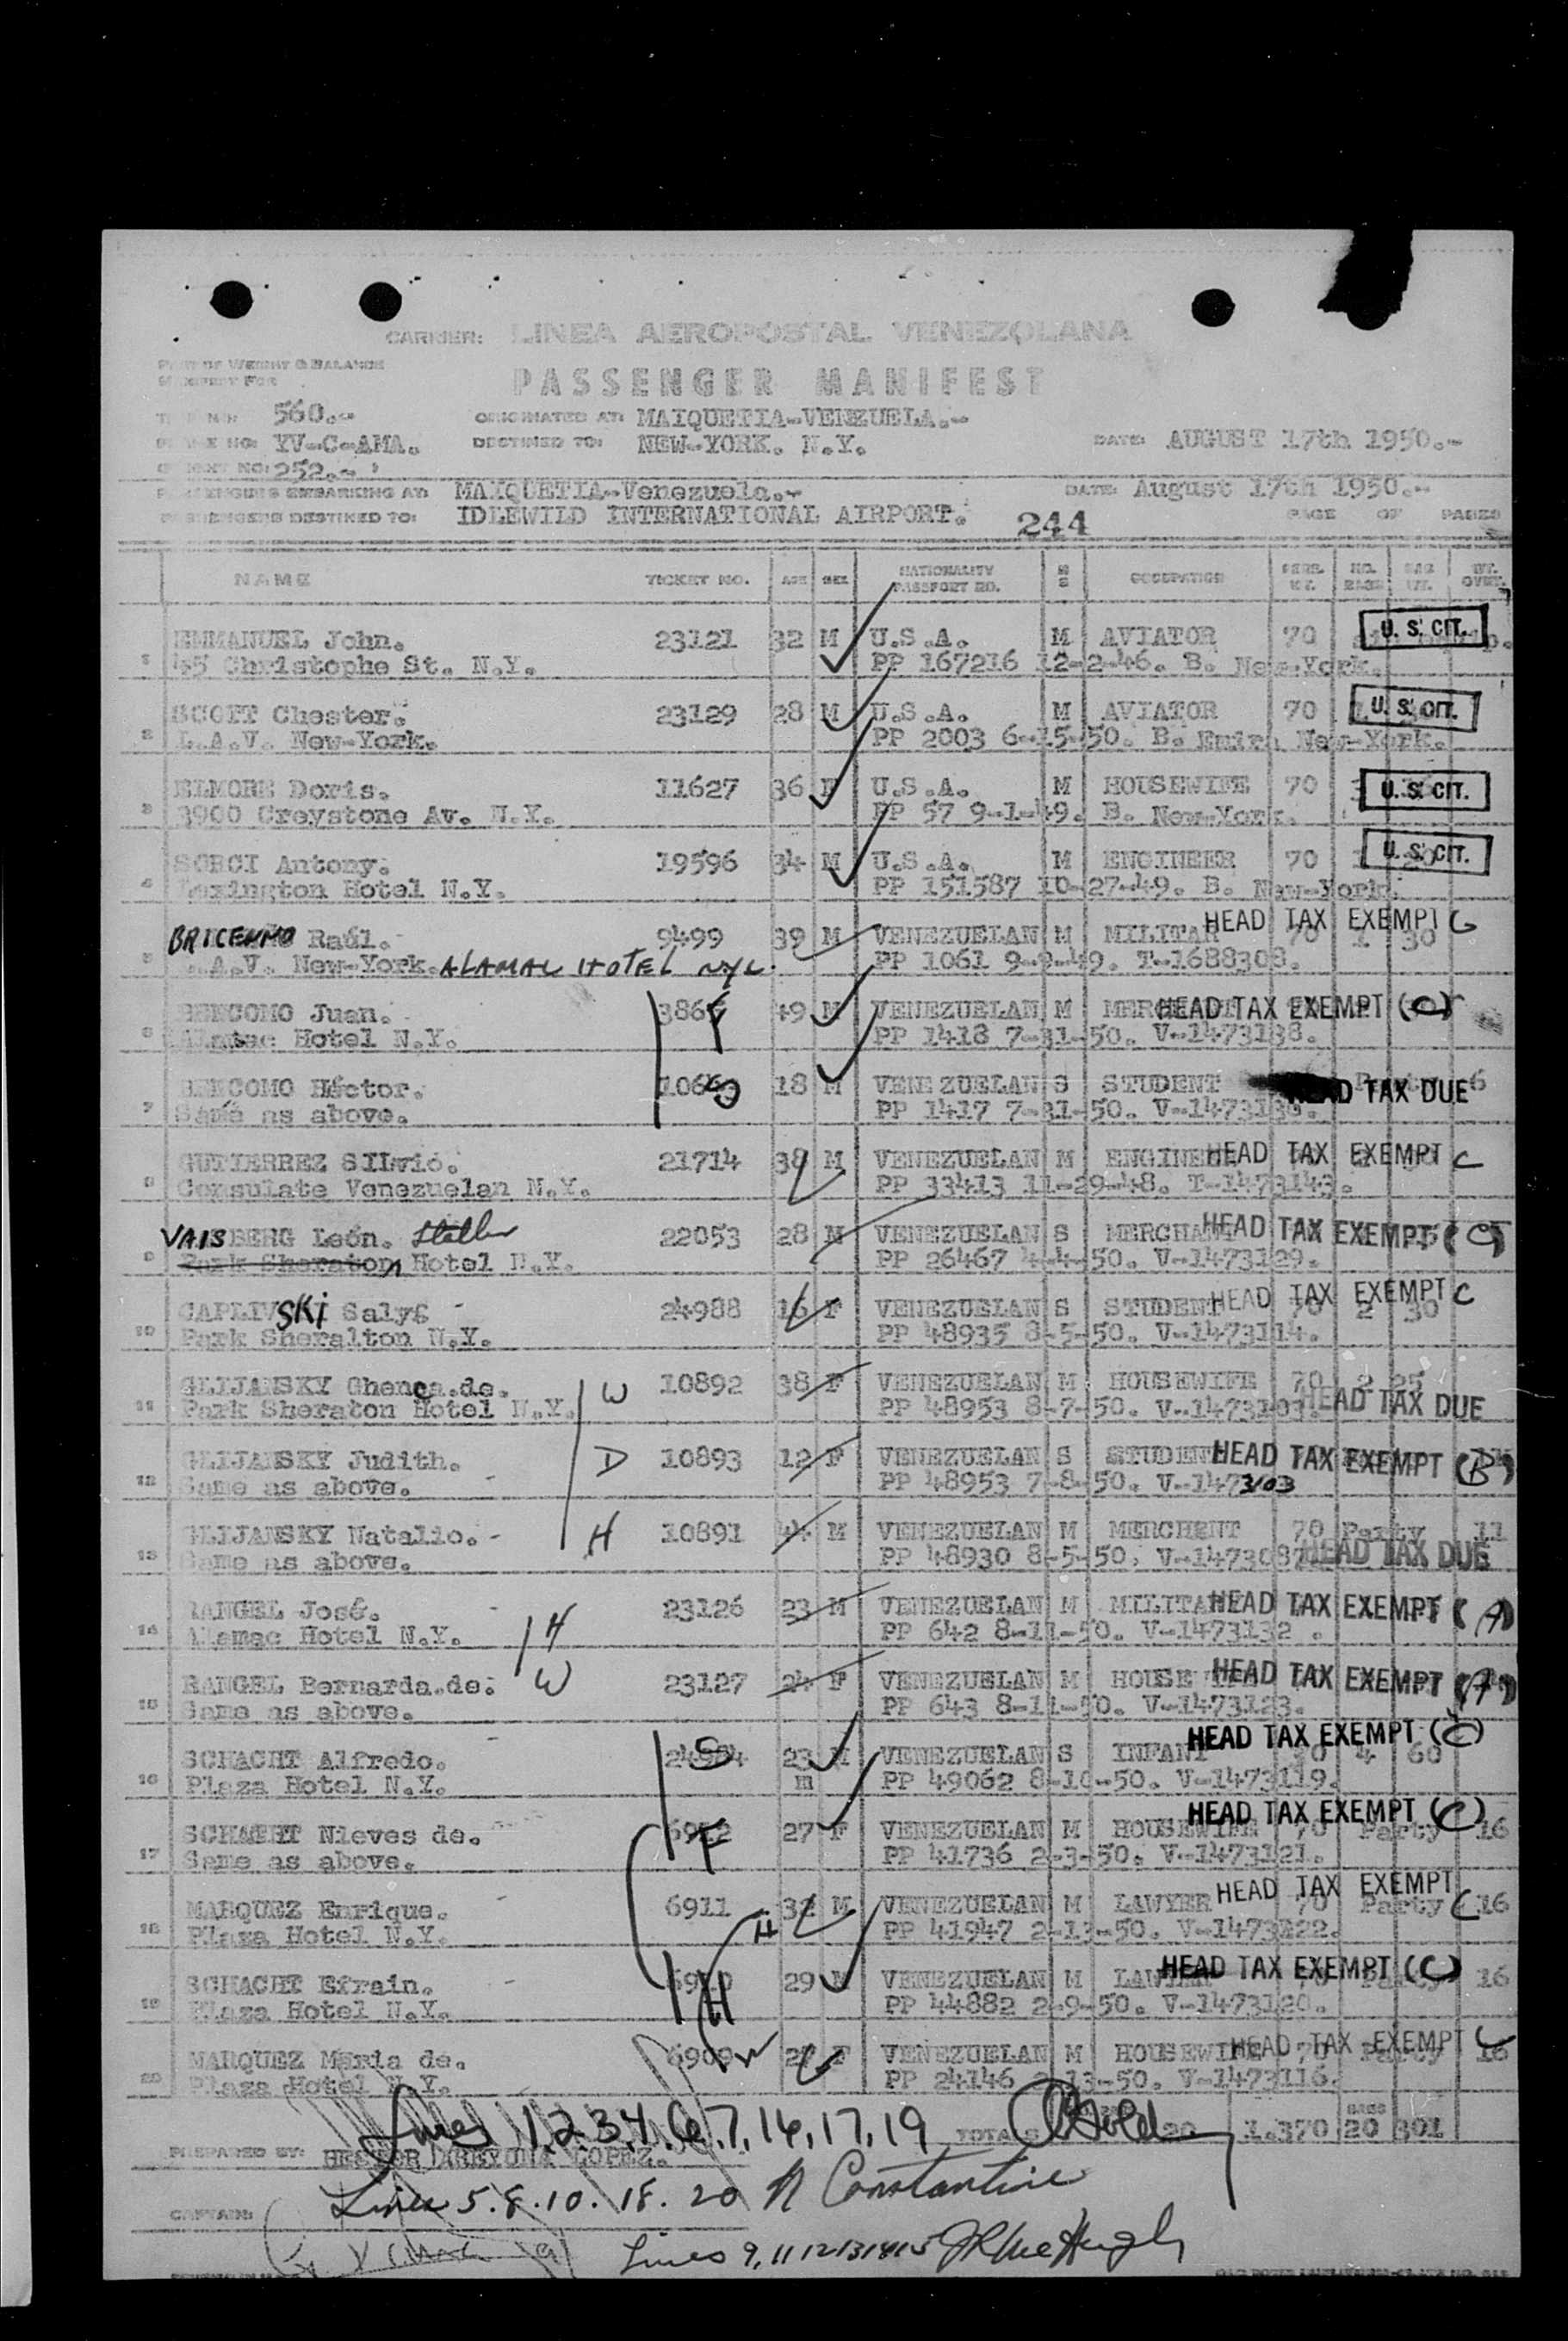 CARRIER: LINEA AEROPOSTAL VENEZOLANA
PART OF WEIGHT & BALANCE
MANIFEST FOR
PASSENGER MANIFEST
560.- ORIGINATED AT: MAIQUETIA-VENZUELA.-
YV-C-AMA. DESTINED TO: NEW-YORK. N.Y. DATE: AUGUST 17th 1950.-
252.-
PASSENGERS EMBARKING AT: MAIQUETIA-Venezuela.- DATE: August 17th 1950.-
PASSENGERS DESTINED TO: IDLEWILD INTERNATIONAL AIRPORT. 244 PAGE OF PAGES
NAME TICKET NO. AGE SEX NATIONALITY PASSPORT NO. M S OCCUPATION PERS. WT. NO. BAGS BAG WT. WT. OVER.
EMMANUEL John. 23121 32 M U.S.A. M AVIATOR 70 U.S. CIT.
1 45 Christophe St. N.Y. PP 167216 12-2-46. B. New-York.
SCOTT Chester. 23129 28 M U.S.A. M AVIATOR 70 U.S. CIT.
2 L.A.V. New-York. PP 2003 6-15-50. B. New-York.
ELMORE Doris. 11627 36 F U.S.A. M HOUSEWIFE 70 U.S. CIT.
3 3900 Greystone Av. N.Y. PP 57 9-1-49. B. New-York.
Antony. 19596 34 M U.S.A. M ENGINEER 70 U.S. CIT.
4 Lexington Hotel N.Y. PP 151587 10-27-49. B. New-York.
BRICENNO Raúl. 9499 39 M VENEZUELAN M MILITAR HEAD TAX EXEMPT 1 30
5 L.A.V. New-York. ALAMAC HOTEL NYC. PP 1061 9-9-49. T-1688308.
BENCOMO Juan. F 49 M VENEZUELAN M HEAD TAX EXEMPT (C)
6 Alamac Hotel N.Y. PP 1418 7-31-50. V-1473138.
BENCOMO Héctor. S 18 M VENEZUELAN S STUDENT HEAD TAX DUE 6
7 Same as above. PP 1417 7-31-50.
GUTIERREZ SILvio. 21714 38 M VENEZUELAN M ENGINEER HEAD TAX EXEMPT C
8 Consulate Venezuelan N.Y. PP 33413 11-29-48. T-1473143.
VAISBERG León. Statler 22053 28 M VENEZUELAN S MERCHANT HEAD TAX EXEMPT (C)
9 Park Sheraton Hotel N.Y. PP 26467 4-4-50. V-1473129.
CAPLIVSKI Salys 24988 16 F VENEZUELAN S STUDENT HEAD TAX EXEMPT C 70 2 30
10 Park Sheralton N.Y. PP 48935 8-5-50. V-1473114.
GLIJANSKY Ghenca.de. W 10892 38 F VENEZUELAN M HOUSEWIFE 70 2 25
11 Park Sheraton Hotel N.Y. PP 48953 8-7-50. V-1473103. HEAD TAX DUE
GLIJANSKY Judith. D 10893 12 F VENEZUELAN S STUDENT HEAD TAX EXEMPT (B)
12 Same as above. PP 48953 7-8-50. V-1473103
GLIJANSKY Natalio.- H 10891 44 M VENEZUELAN M MERCHENT 70 Party 11
13 Same as above. PP 48930 8-5-50. V-1473087 HEAD TAX DUE
RANGEL José. H 23126 23 M VENEZUELAN M MILITAR HEAD TAX EXEMPT (A)
14 Alamac Hotel N.Y. PP 642 8-11-50. V-1473132 .
RANGEL Bernarda.de. W 23127 24 F VENEZUELAN M HOUSEWIFE HEAD TAX EXEMPT (A)
15 Same as above. PP 643 8-11-50. V-1473123.
SCHACHT Alfredo. S 23 M VENEZUELAN S INFANT HEAD TAX EXEMPT (C) 70 4 60
16 Plaza Hotel N.Y. m PP 49062 8-10-50. V-1473119.
SCHACHT Nieves de. 6912 27 F VENEZUELAN M HOUSEWIFE HEAD TAX EXEMPT (C) 70 Party 16
17 Same as above. PP 41736 2-3-50. V-1473121.
MARQUEZ Enrique. 6911 H 32 M VENEZUELAN M LAWYER HEAD TAX EXEMPT C 70 Party 16
18 Plaza Hotel N.Y. PP 41947 2-13-50. V-1473122.
SCHACHT Efrain. 6910 H 29 M VENEZUELAN M LAWYER HEAD TAX EXEMPT (C) 16
19 Plaza Hotel N.Y. PP 44882 2-9-50. V-1473120.
MARQUEZ Maria de. 6909 W F VENEZUELAN M HOUSEWIFE HEAD TAX EXEMPT C Party 16
20 Plaza Hotel N.Y. PP 24146 2-13-50. V-1473116.
Lines 1,2,3,4,6,7,16,17,19 TOTALS 20 1.370 BAGS 20 301
PREPARED BY: HECTOR AREYUNA LOPEZ.
CAPTAIN: Lines 5.8.10.18.20 A Constantine
Lines 9,11 12 13 14 15 McHugh